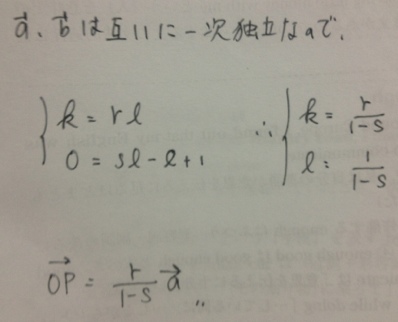 a⃗、b⃗は互いに一次独立なので、
{ k = rl
0 = sl - l + 1
∴ { k = r/(1-s)
l = 1/(1-s)
OP⃗ = r/(1-s) a⃗ 〃